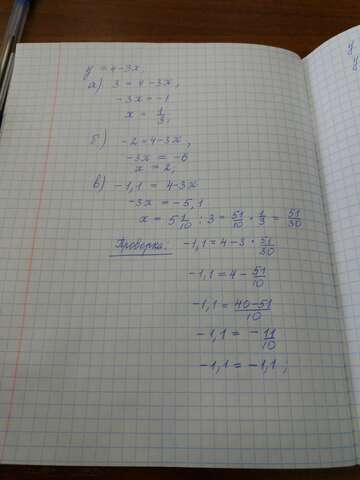 y = 4-3x
а) 3 = 4-3x,
-3x = -1
x = 1/3,
б) -2 = 4-3x,
-3x = -6
x = 2,
в) -1,1 = 4-3x
-3x = -5,1
x = 5 1/10 : 3 = 51/10 · 1/3 = 51/30
Проверка: -1,1 = 4-3 · 51/30
-1,1 = 4 - 51/10
-1,1 = 40-51/10
-1,1 = - 11/10
-1,1 = -1,1;
y
y